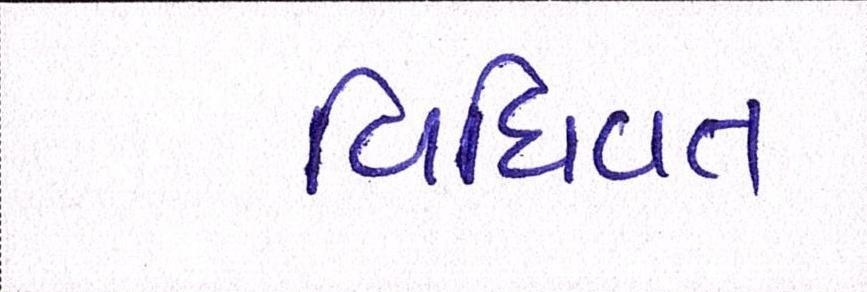 વિધિવત